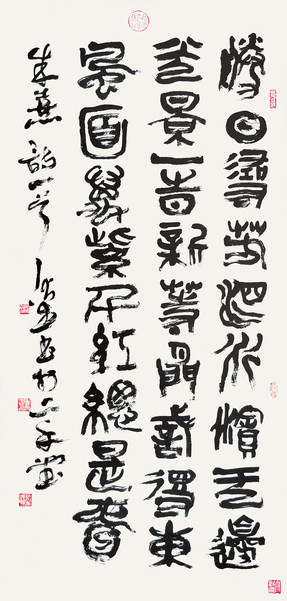 勝日尋芳泗水濱无邊
光景一旹新等閒識得東
風面萬紫千紅總是春
朱熹詩一首